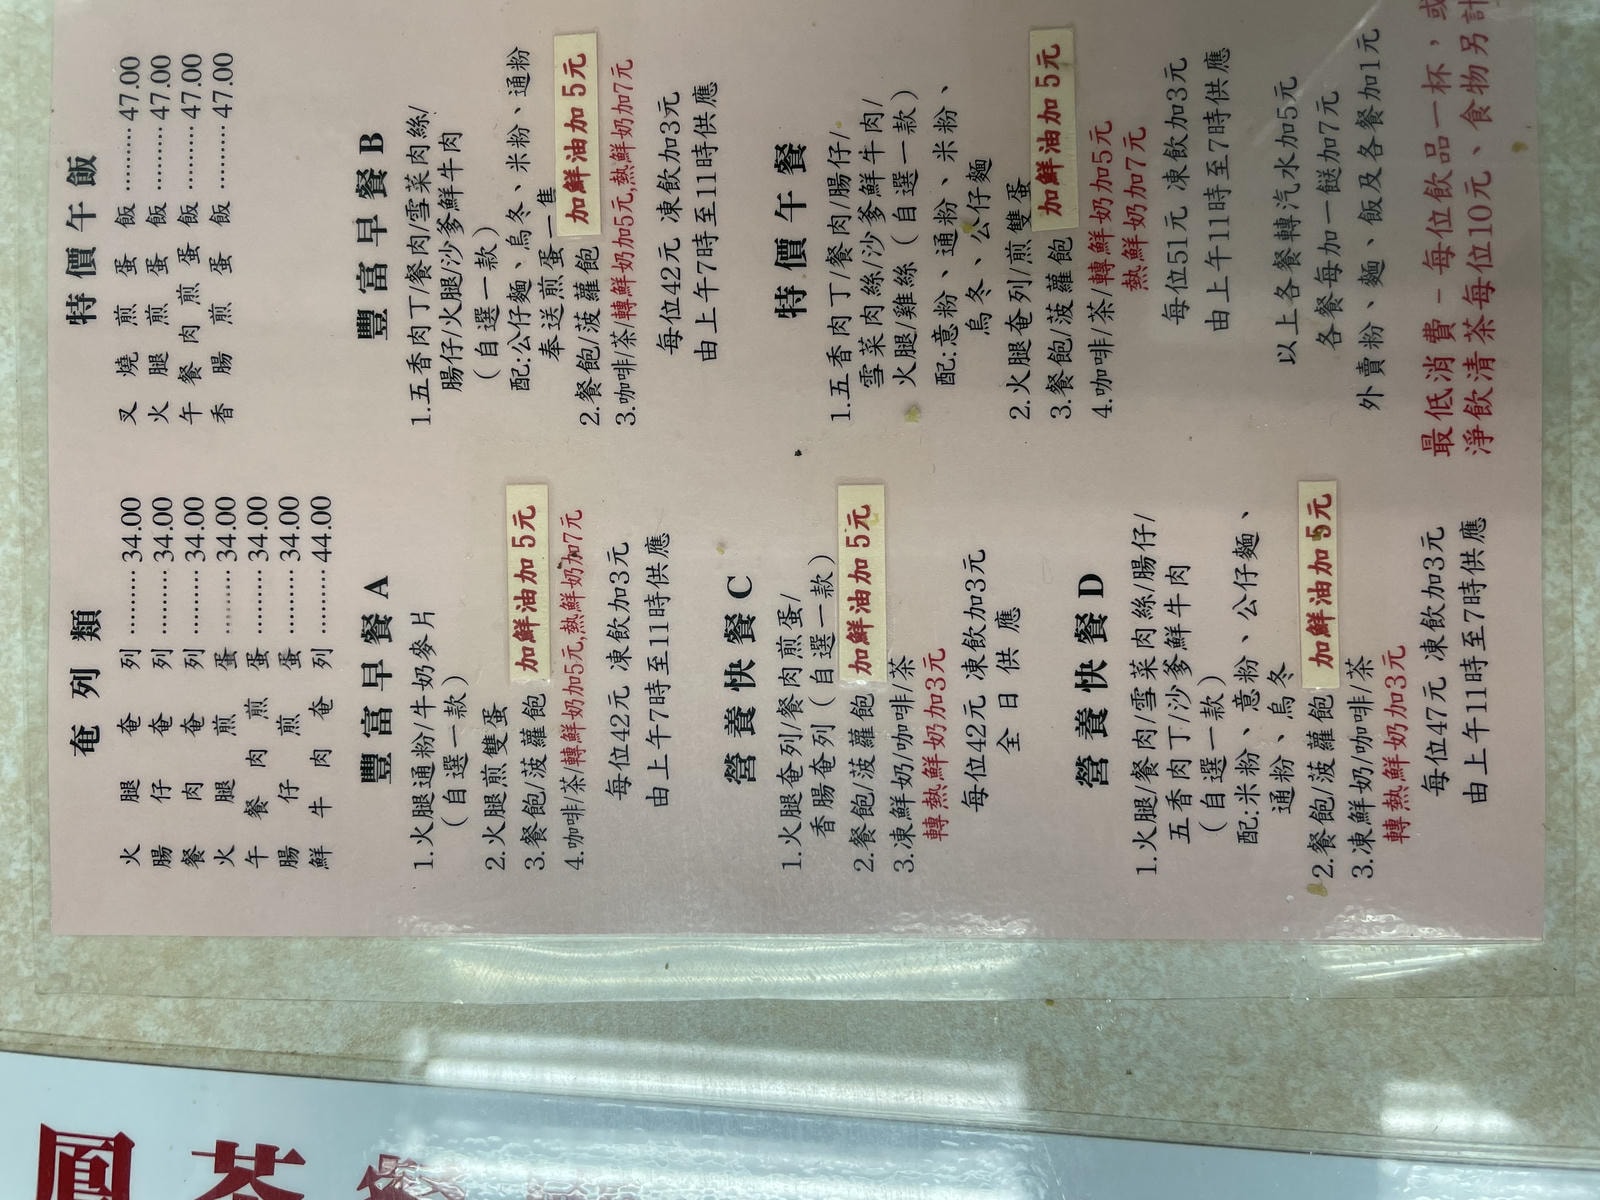 奄列類
火腿奄列 ……… 34.00
腸仔奄列 ……… 34.00
餐肉奄列 ……… 34.00
火腿煎蛋 ……… 34.00
午餐肉煎蛋 ……… 34.00
腸仔煎蛋 ……… 34.00
鮮牛肉奄列 ……… 44.00
特價午飯
叉燒煎蛋飯 ……… 47.00
火腿煎蛋飯 ……… 47.00
午餐肉煎蛋飯 ……… 47.00
香腸煎蛋飯 ……… 47.00
豐富早餐 A
1.火腿通粉/牛奶麥片
(自選一款)
2.火腿煎雙蛋
3.餐飽/菠蘿飽 加鮮油加5元
4.咖啡/茶/轉鮮奶加5元,熱鮮奶加7元
每位42元 凍飲加3元
由上午7時至11時供應
豐富早餐 B
1.五香肉丁/餐肉/雪菜肉絲/
腸仔/火腿/沙爹鮮牛肉
(自選一款)
配:公仔麵、烏冬、米粉、通粉
奉送煎蛋一隻
2.餐飽/菠蘿飽 加鮮油加5元
3.咖啡/茶/轉鮮奶加5元,熱鮮奶加7元
每位42元 凍飲加3元
由上午7時至11時供應
營養快餐 C
1.火腿奄列/餐肉煎蛋/
香腸奄列(自選一款)
2.餐飽/菠蘿飽 加鮮油加5元
3.凍鮮奶/咖啡/茶
轉熱鮮奶加3元
每位42元 凍飲加3元
全日供應
特價午餐
1.五香肉丁/餐肉/腸仔/
雪菜肉絲/沙爹鮮牛肉/
火腿/雞絲(自選一款)
配:意粉、通粉、米粉、
烏冬、公仔麵
2.火腿奄列/煎雙蛋
3.餐飽/菠蘿飽 加鮮油加5元
4.咖啡/茶/轉鮮奶加5元
熱鮮奶加7元
每位51元 凍飲加3元
由上午11時至7時供應
營養快餐 D
1.火腿/餐肉/雪菜肉絲/腸仔/
五香肉丁/沙爹鮮牛肉
(自選一款)
配:米粉、意粉、公仔麵、
通粉、烏冬
2.餐飽/菠蘿飽 加鮮油加5元
3.凍鮮奶/咖啡/茶
轉熱鮮奶加3元
每位47元 凍飲加3元
由上午11時至7時供應
以上各餐轉汽水加5元
各餐每加一餸加7元
外賣粉、麵、飯及各餐加1元
最低消費－每位飲品一杯，或
淨飲清茶每位10元、食物另計
茶